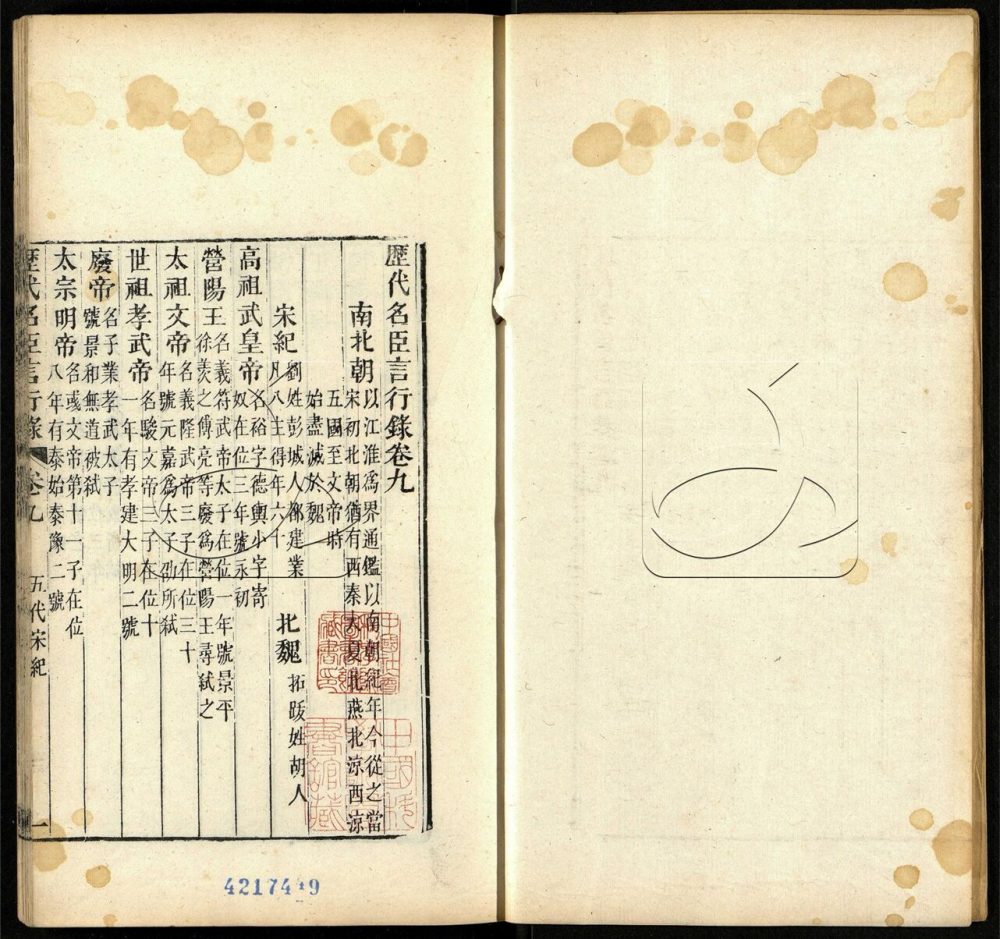 歷代名臣言行錄卷九
南北朝以江淮爲界通鑑以南朝紀年今從之當
宋初北朝猶有西秦大夏北燕北涼西涼
五國至文帝時
始盡滅於魏
宋紀劉姓彭城人都建業
凡八主得年六十
北魏拓跋姓胡人
高祖武皇帝名裕字德輿小字寄
奴在位三年號永初
營陽王名義符武帝太子在位一年號景平
徐羨之傅亮等廢爲營陽王尋弒之
太祖文帝名義隆武帝三子在位三十
年號元嘉爲太子劭所弒
世祖孝武帝名駿文帝三子在位十
一年有孝建大明二號
廢帝名子業孝武太子
號景和無道被弒
太宗明帝名彧文帝第十一子在位
八年有泰始泰豫二號
歷代名臣言行錄
卷九
五代宋紀
一
4217449